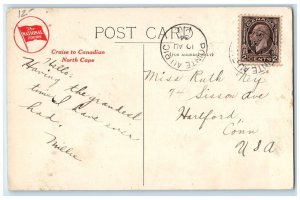 12-
The
NATIONAL
TOURS
Cruise to Canadian
North Cape
POST CARD
POINTE AU PIC
17 AU
CANADA
2 CENTS 2
Hello:
Having the grandest
time I have ever
had.
Millie
Miss Ruth Key
74 Sisson Ave
Hartford,
Conn
USA